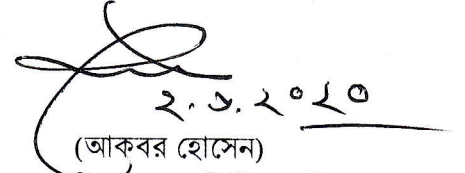 ২.৯.২০২০
(আকবর হোসেন)